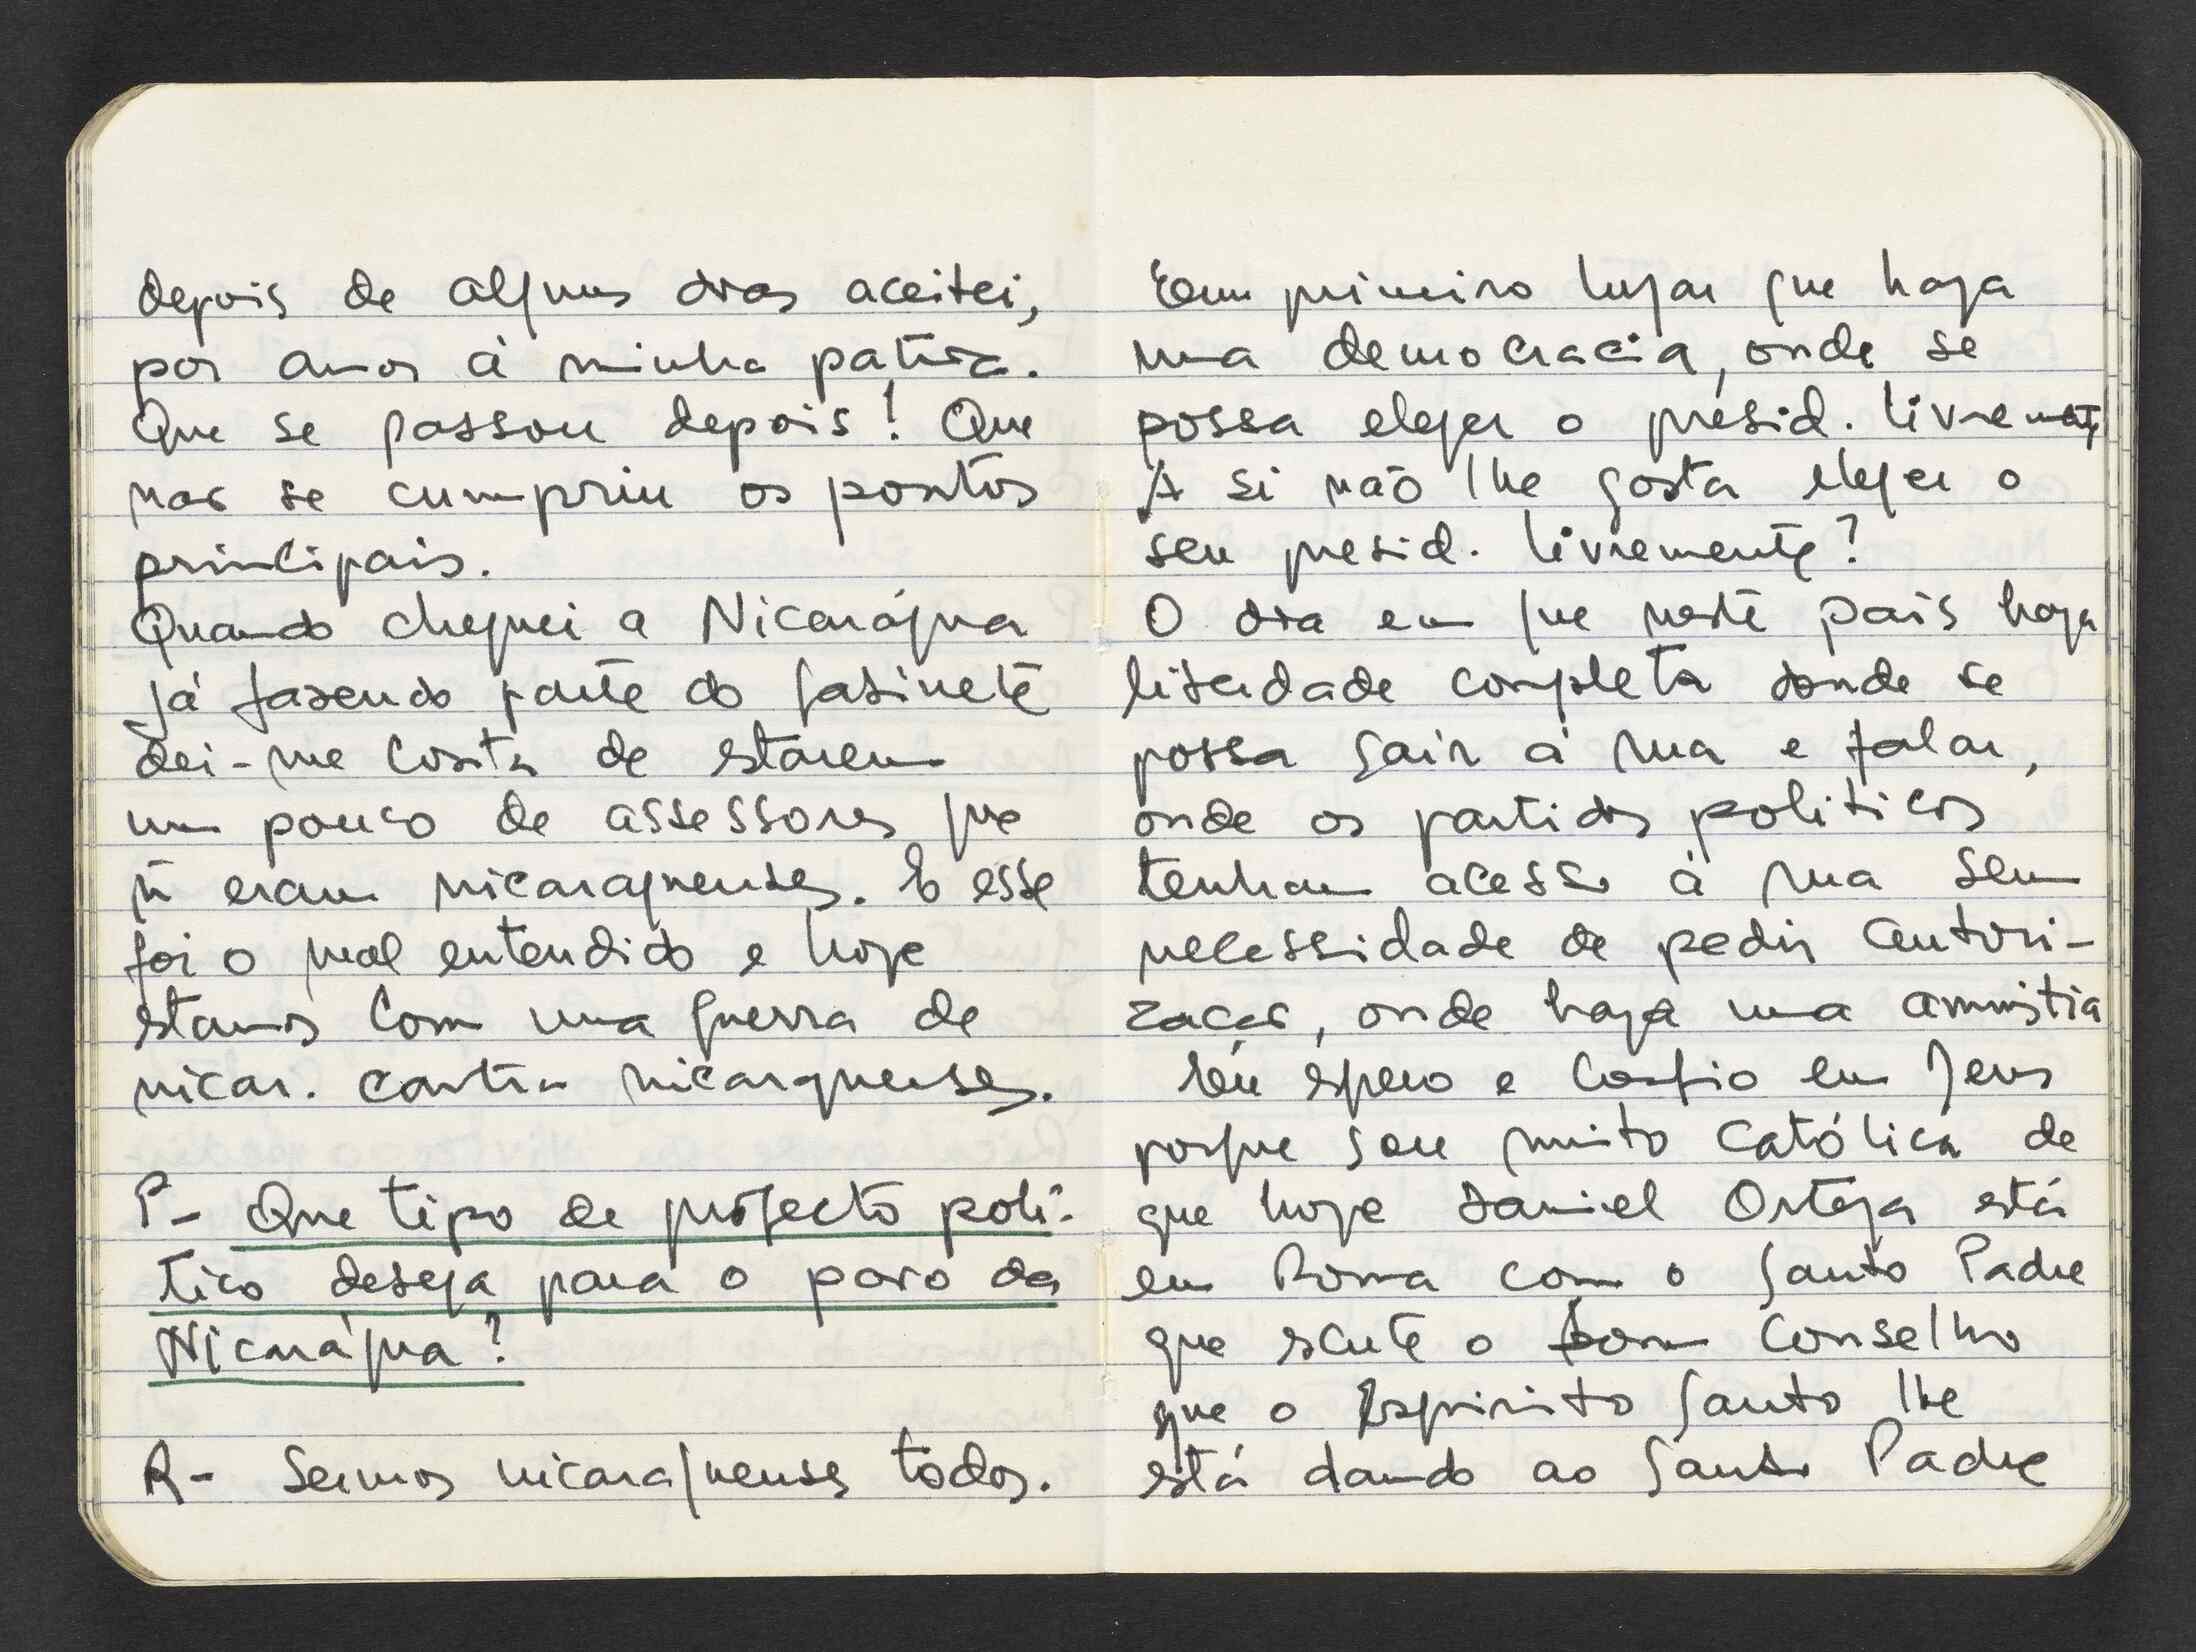 depois de alguns dias aceitei,
por amor à minha pátria.
Que se passou depois! Que
nao se cumpriu os pontos
principais.
Quando cheguei a Nicarágua
já fazendo parte do gabinete
dei-me conta de estarem
um pouco de assessores que
ñ eram nicaraguenses. E esse
foi o mal entendido e hoje
estamos com uma guerra de
nicar. contra nicaraguenses.
P- Que tipo de projecto poli-
tico deseja para o povo da
Nicarágua?
R- Sermos nicaraguenses todos.
Em primeiro lugar que haja
uma democracia, onde se
possa eleger o presid. livremente
A si não lhe gosta eleger o
seu presid. livremente?
O dia em que neste pais haja
liberdade completa donde se
possa sair à rua e falar,
onde os partidos politicos
tenham acesso à rua sem
necessidade de pedir autori-
zacao, onde haja uma amnistia
Eu espero e confio em Jesus
porque sou muito católica de
que hoje Daniel Ortega está
em Roma com o Santo Padre
que escute o bom conselho
que o Espirito Santo lhe
está dando ao Santo Padre